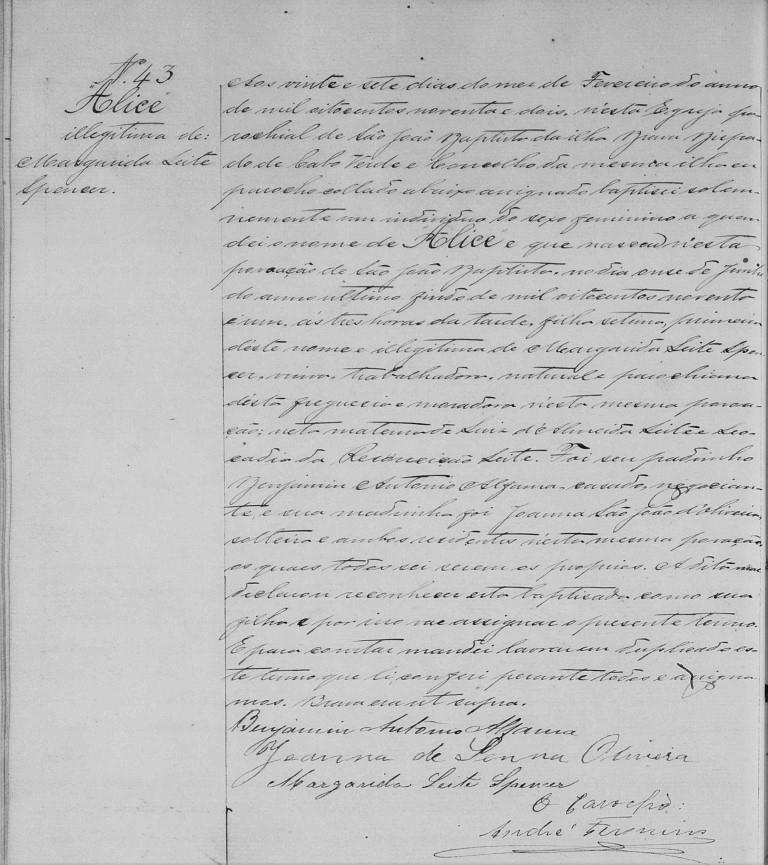 N.º 43
Alice
illegitima de:
Margarida Leite
Spencer.
Aos vinte e sete dias do mez de Fevereiro do anno
de mil oitocentos noventa e dois, n'esta Egreja pa
rochial de São João Baptista da ilha Brava Bispa
do de Cabo Verde e Concelho da mesma ilha eu
parocho collado abaixo assignado baptisei solem
nemente um individuo do sexo feminino a quem
dei o nome de "Alice" e que nasceu n'esta
povoação de São João Baptista, no dia onse de Junho
do anno ultimo findo de mil oitocentos noventa
e um, ás tres horas da tarde, filha setima, primeira
déste nome e illegitima de Margarida Leite Spen
cer, viuva, trabalhadora, natural e parochiana
désta freguesia e moradora n'esta mesma povoa
ção; neta materna de Luiz d'Almeida Leite e Leo
cadia da Resurreição Leite. Foi seu padrinho
Benjamin Antonio Alfama, casado, negocian
te, e sua madrinha foi Joanna São João d'Oliveira
solteira e ambos residentes n'esta mesma povoação,
os quaes todos sei serem os proprios. A dita mãe
declarou reconhecer esta baptisada como sua
filha e por isso vae assignar o presente termo.
E para constar mandei lavrar em duplicado es
te termo que li, conferi perante todos e assigna
mos. Brava era ut supra.
Benjamin Antonio Alfama
Joanna de Senna Oliveira
Margarida Leite Spencer
O Parocho:
André Firmino